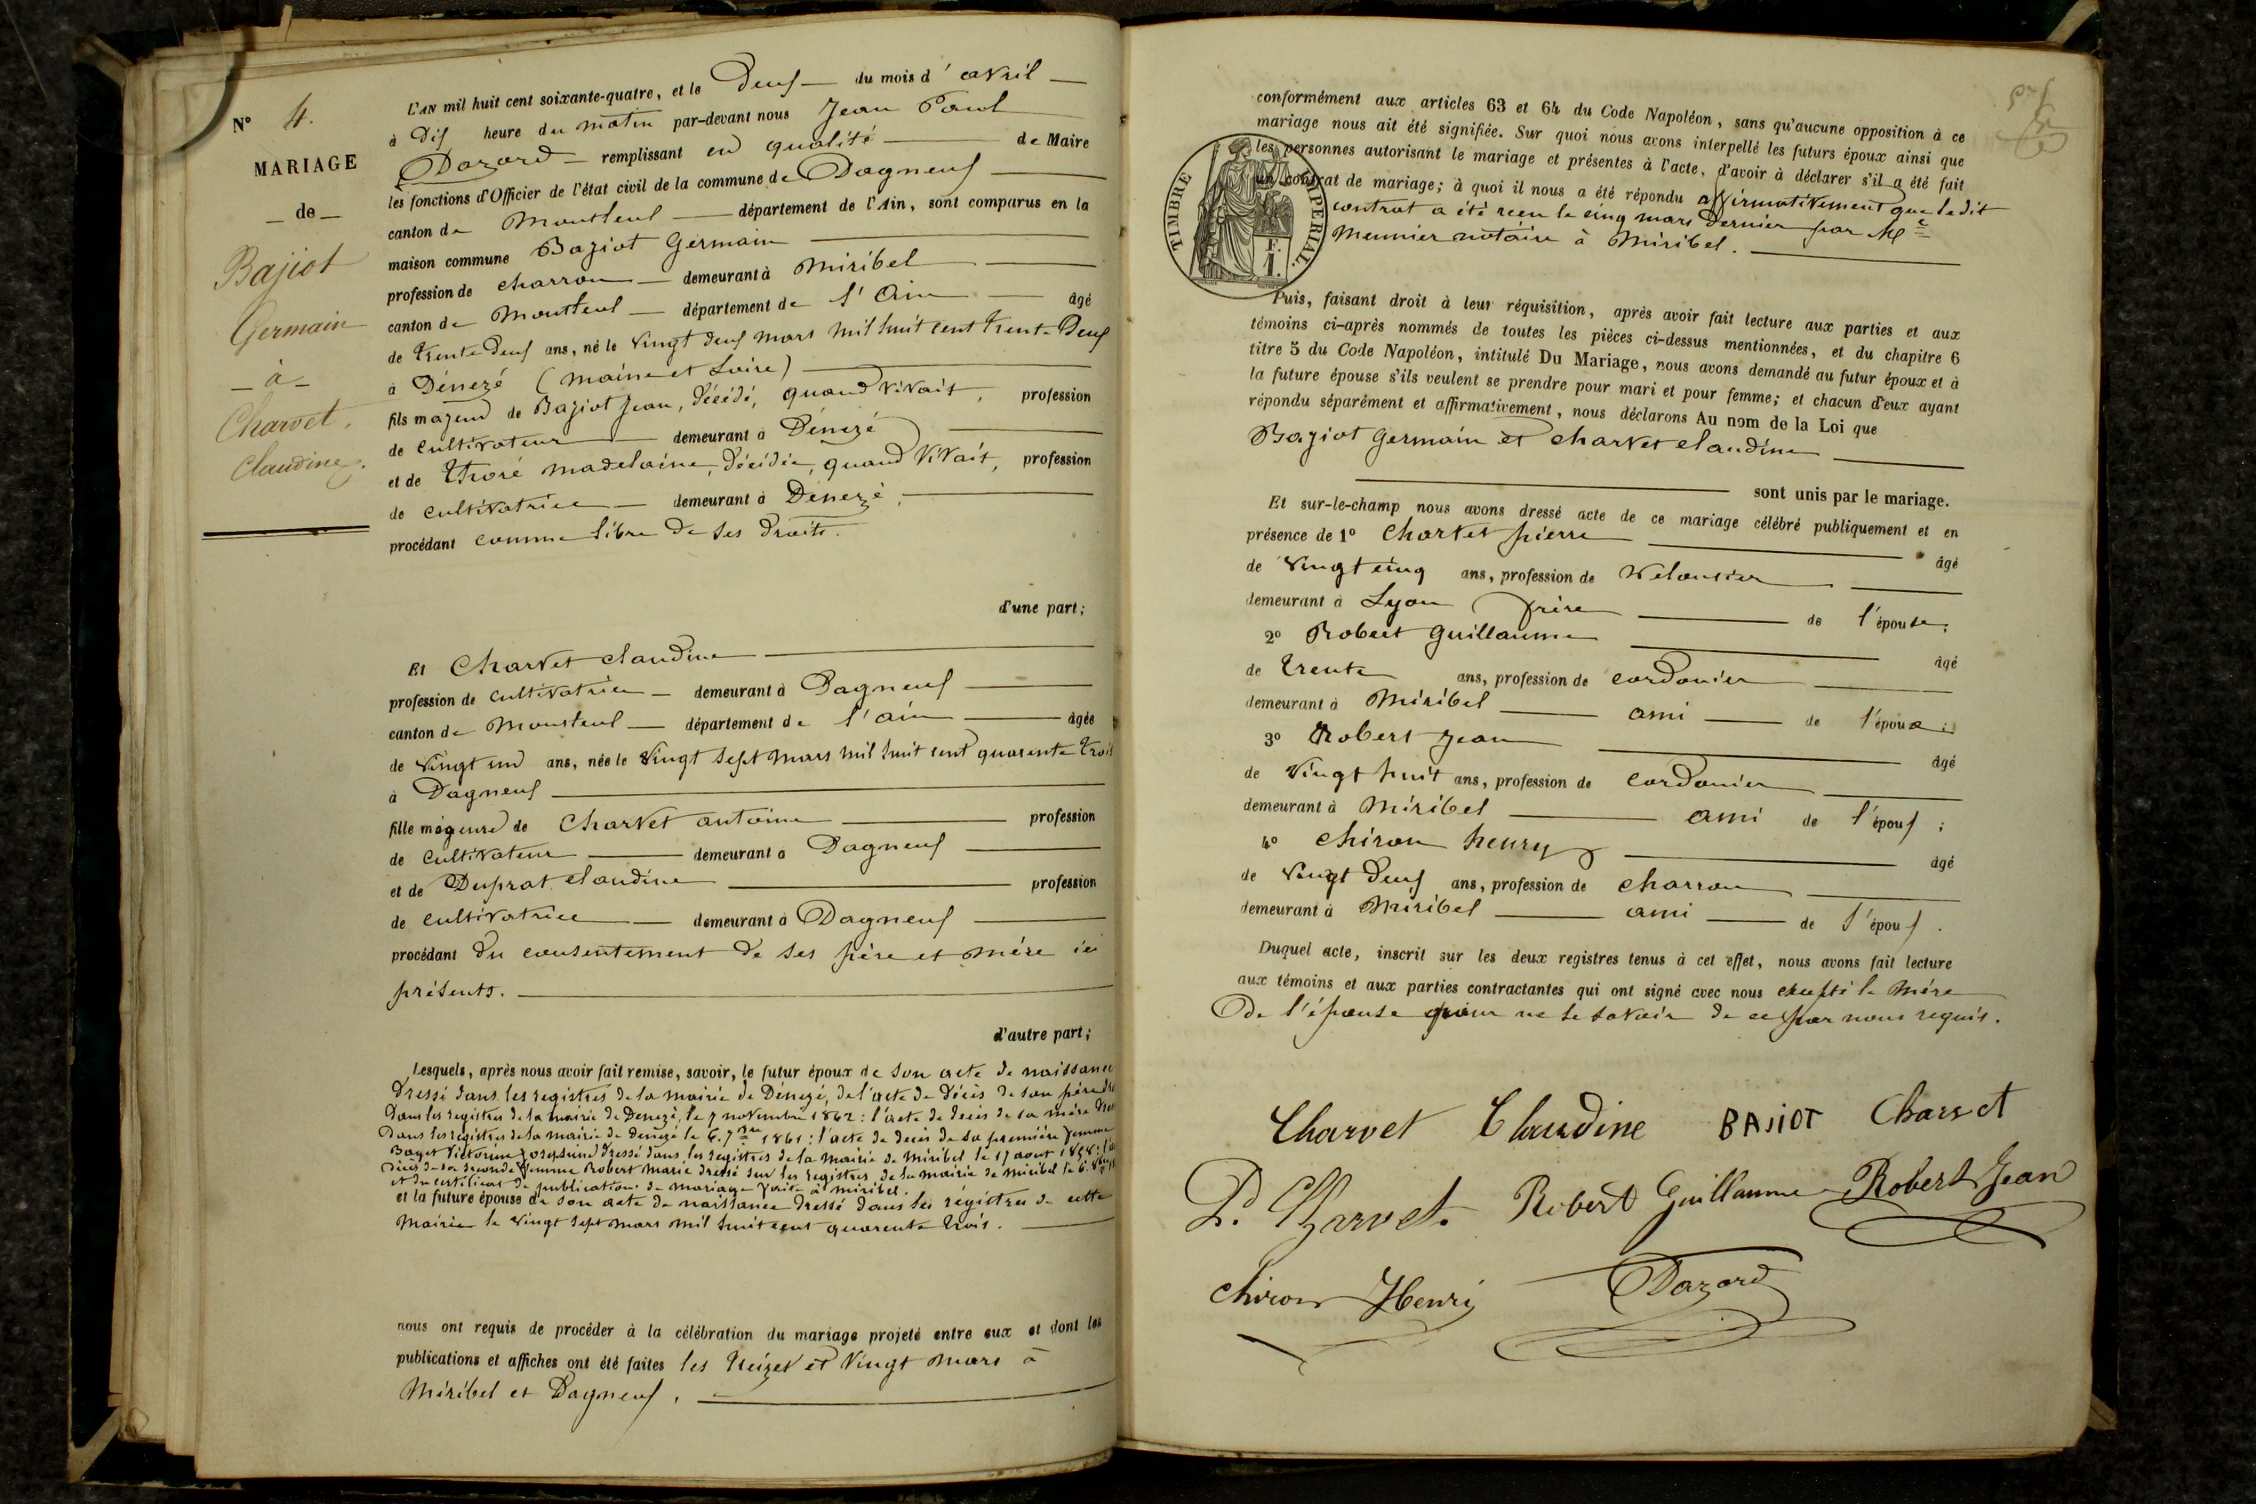 N° 4.
MARIAGE
— de —
Bajiot
Germain
— à —
Charvet,
Claudine.
L'AN mil huit cent soixante-quatre, et le Deux — du mois d'avril —
à Dix heure du matin par-devant nous Jean Paul
Dazard — remplissant en qualité — de Maire
les fonctions d'Officier de l'état civil de la commune de Dagneux —
canton de Montluel — département de l'Ain, sont comparus en la
maison commune Bajiot Germain —
profession de charron — demeurant à Miribel —
canton de Montluel — département de l'Ain — âgé
de trente Deux ans, né le Vingt deux mars mil huit cent trente Deux
à Dénezé (Maine et Loire) —
fils majeur de Bajiot Jean, décédé, quand vivait, profession
de cultivateur — demeurant à Dénezé —
et de Thoré Madelaine, décédée, quand vivait, profession
de cultivatrice — demeurant à Dénezé, —
procédant comme libre de ses droits.
d'une part;
Et Charvet claudine —
profession de cultivatrice — demeurant à Dagneux —
canton de Montluel — département de l'ain — âgée
de Vingt un ans, née le Vingt sept mars mil huit cent quarente trois
à Dagneux —
fille mageure de Charvet antoine — profession
de cultivateur — demeurant à Dagneux —
et de Duprat claudine — profession
de cultivatrice — demeurant à Dagneux —
procédant du consentement de ses père et mère ici
présents. —
d'autre part;
Lesquels, après nous avoir fait remise, savoir, le futur époux de son acte de naissance
dressé dans les registres de la mairie de Dénezé, de l'acte de décès de son père
dans les registres de la mairie de Denezé, le 7 novembre 1862: l'acte de decès de sa mère
Dans les registres de la mairie de denezé le 6. 7bre 1861: l'acte de deces de sa première femme
Victorine dressé dans les registres de la mairie de Miribel le 17 aout
décès de sa seconde femme Robert Marie dressé sur les registres de la mairie de miribel le 6.
et du certificat de publication de mariage faite à miribel.
et la future épouse de son acte de naissance dressé dans les registres de cette
Mairie le vingt sept mars mil huit cent quarente trois. —
nous ont requis de procéder à la célébration du mariage projeté entre eux et dont les
publications et affiches ont été faites les treize et Vingt mars à
Miribel et Dagneux. —
conformément aux articles 63 et 64 du Code Napoléon, sans qu'aucune opposition à ce
mariage nous ait été signifiée. Sur quoi nous avons interpellé les futurs époux ainsi que
les personnes autorisant le mariage et présentes à l'acte, d'avoir à déclarer s'il a été fait
un contrat de mariage; à quoi il nous a été répondu affirmativement que ledit
contrat a été reçu le cinq mars Dernier par Me
Meunier notaire à Miribel. —
TIMBRE IMPERIAL.
F.
1.
Puis, faisant droit à leur réquisition, après avoir fait lecture aux parties et aux
témoins ci-après nommés de toutes les pièces ci-dessus mentionnées, et du chapitre 6
titre 5 du Code Napoléon, intitulé Du Mariage, nous avons demandé au futur époux et à
la future épouse s'ils veulent se prendre pour mari et pour femme; et chacun d'eux ayant
répondu séparément et affirmativement, nous déclarons Au nom de la Loi que
Bajiot Germain et Charvet claudine —
— sont unis par le mariage.
Et sur-le-champ nous avons dressé acte de ce mariage célébré publiquement et en
présence de 1° Charvet pierre — âgé
de Vingt cinq ans, profession de Veloutier —
demeurant à Lyon frère — de l'épouse;
2° Robert Guillaume — âgé
de trente ans, profession de cordonier —
demeurant à Miribel — ami — de l'époux;
3° Robert Jean — âgé
de Vingt huit ans, profession de Cordonier —
demeurant à Miribel — ami de l'époux;
4° Chiron henry — âgé
de Vingt Deux ans, profession de charron —
demeurant à Miribel — ami — de l'époux.
Duquel acte, inscrit sur les deux registres tenus à cet effet, nous avons fait lecture
aux témoins et aux parties contractantes qui ont signé avec nous excepté la Mère
De l'épouse pour ne le savoir de ce par nous requis.
Charvet Claudine BAJIOT Charvet
P. Charvet. Robert Guillaume Robert Jean
chiron Henri Dazard